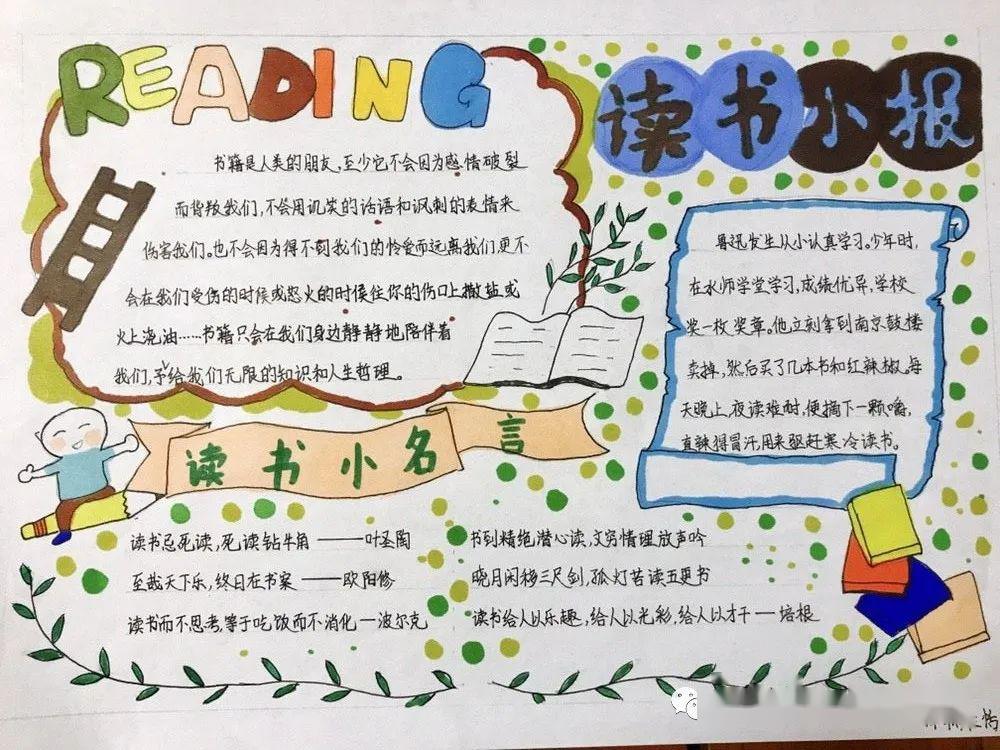 READING
读书小报
书籍是人类的朋友,至少它不会因为感情破裂
而背叛我们,不会用讥笑的话语和讽刺的表情来
伤害我们。也不会因为得不到我们的怜爱而远离我们,更不
会在我们受伤的时候或怒火的时候往你的伤口上撒盐或
火上浇油……书籍只会在我们身边静静地陪伴着
我们,予给我们无限的知识和人生哲理。
鲁迅发生从小认真学习。少年时,
在水师学堂学习,成绩优异,学校
奖一枚奖章。他立刻拿到南京鼓楼
卖掉,然后买了几本书和红辣椒。每
天晚上,夜读难耐,便摘下一颗嚼,
直辣得冒汗,用来驱赶寒冷读书。
读书小名言
读书忌死读,死读钻牛角——叶圣陶
至哉天下乐,终日在书案——欧阳修
读书而不思考,等于吃饭而不消化—波尔克
书到精绝潜心读,文穷情理放声吟
晓月闲移三尺剑,孤灯苦读五更书
读书给人以乐趣,给人以光彩,给人以才干—培根